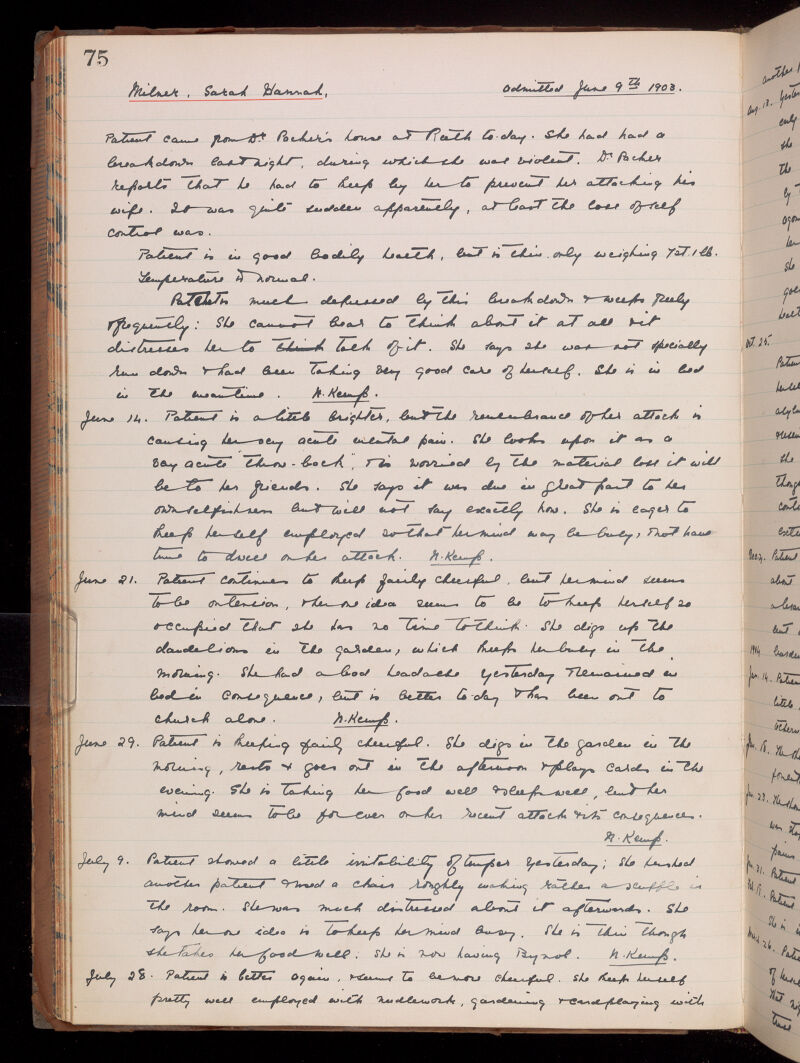 75
Milner, Sarah Hannah, Admitted June 9th 1903.
Patient came from Dr Pocher's house at to-day. She had had a
breakdown last night, during which she was violent. Dr Pocher
reports that he had to keep by her to prevent her attacking his
wife. It was quite sudden apparently, at least the loss of self
control was.
Patient is in good bodily health, but is thin only weighing 7st. 1 lb.
Temperature is normal.
Patient is much depressed by this breakdown & weeps freely
& frequently: She cannot bear to think about it at all & it
distresses her to think talk of it. She says she was not specially
run down & had been taking very good care of herself. She is in bed
in the meantime. N. Kemp.
June 14. Patient is a little brighter, but the remembrance of her attack is
causing her very acute mental pain. She looks upon it as a
very acute "throw-back", & is worried by the material loss it will
be to her friends. She says it was due in great part to her
own selfishness but will not say exactly how. She is eager to
keep herself employed so that her mind may be busy, & not have
time to dwell on her attack. N. Kemp.
June 21. Patient continues to keep fairly cheerful, but her mind seems
to be on tension, & her one idea seems to be to keep herself so
occupied that she has no time to think. She digs up the
dandelions in the garden, which keeps her busy in the
morning. She had a bad headache yesterday & remained in
bed in consequence, but is better to-day & has been out to
church alone. N. Kemp.
June 29. Patient is keeping fairly cheerful. She digs in the garden in the
morning, rests & goes out in the afternoon & plays cards in the
evening. She is taking her food well & sleeps well, but her
mind seems to be for ever on her recent attack & its consequences.
N. Kemp.
July 9. Patient showed a little irritability of temper yesterday; She pushed
another patient & used a chair roughly making rather a scuffle in
the room. She was much distressed about it afterwards. She
says her one idea is to keep her mind busy. She is thin though
she takes her food well. She is now having Bynol. N. Kemp.
July 28. Patient is better again, & seems to be now cheerful. She keeps herself
pretty well employed with needlework, gardening & cardplaying with
another
Aug. 13.
only
she
the
by
she
Oct. 25.
Patient
herself
the
Patient
about
but
1904
Jan. 14. Patien
little
Jan. 18.
Jan. 23.
was they
Jan. 31. Patient
Feb. 18. Patient
She is
March 26. Patie
of herself
that